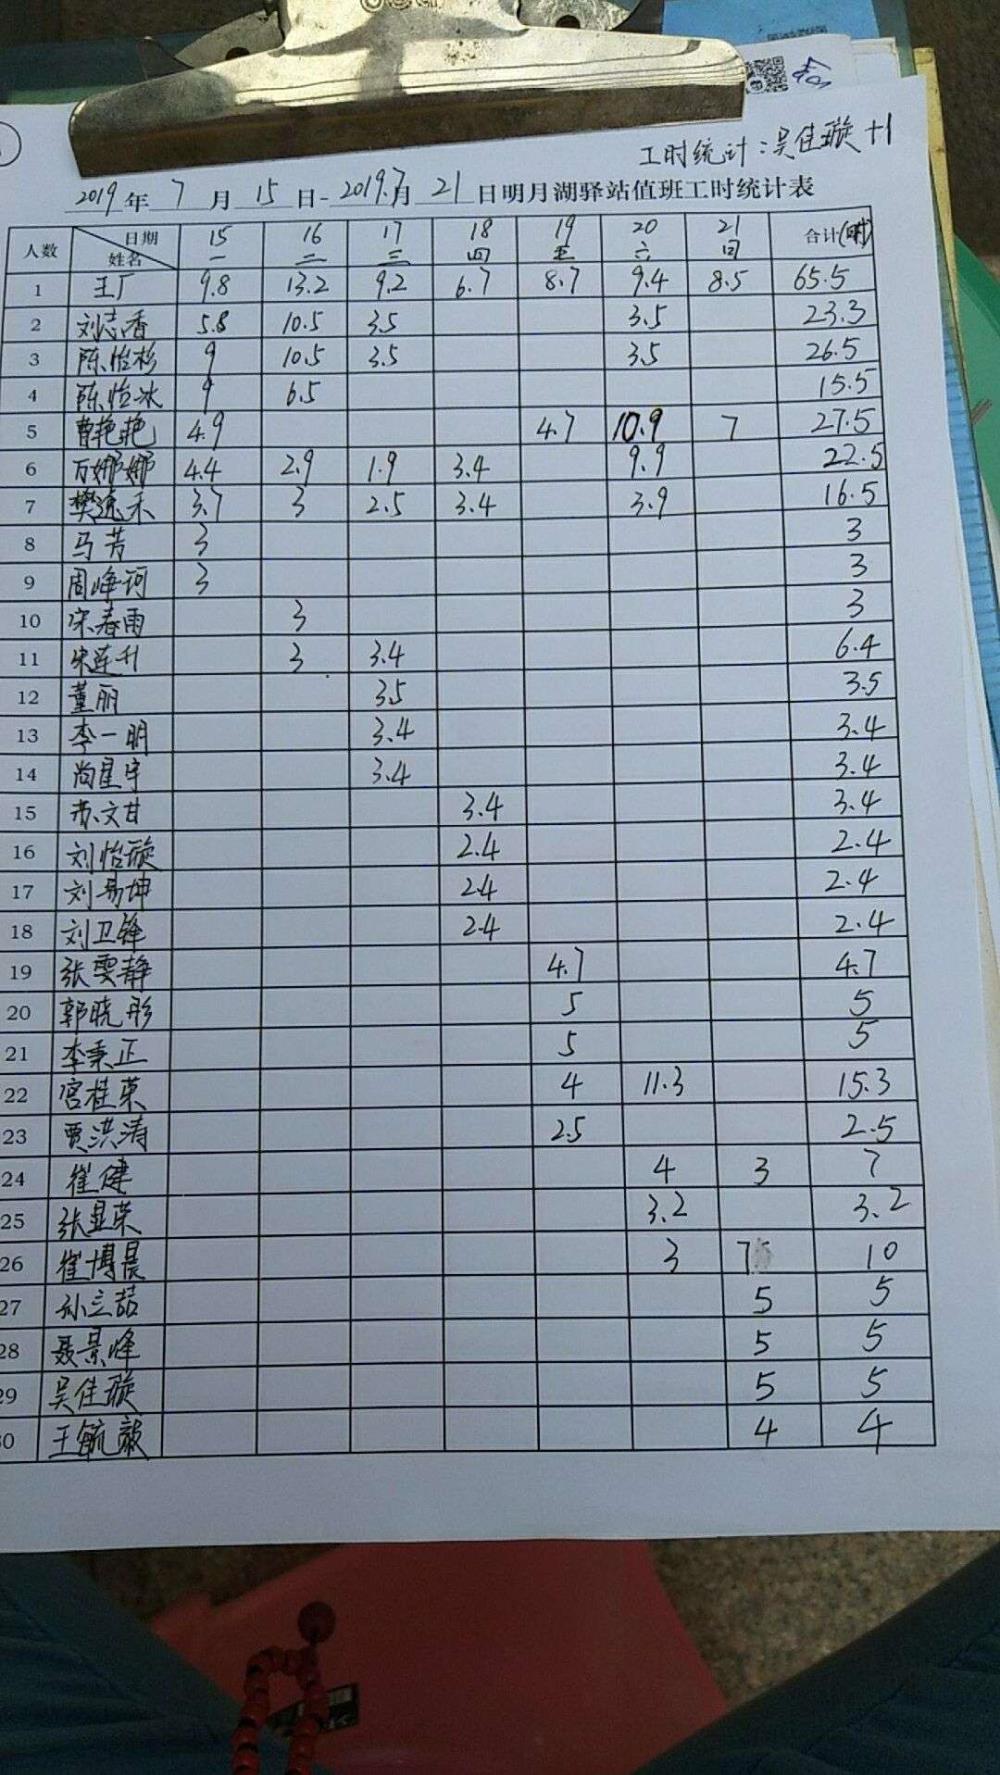 工时统计:吴佳璇 +1
2019年7月15日-2019.7月21日明月湖驿站值班工时统计表
人数 日期 姓名 15 一 16 二 17 三 18 四 19 五 20 六 21 日 合计(小时)
1 王厂 9.8 13.2 9.2 6.7 8.7 9.4 8.5 65.5
2 刘志香 5.8 10.5 3.5 3.5 23.3
3 陈怡杉 9 10.5 3.5 3.5 26.5
4 陈怡冰 9 6.5 15.5
5 曹艳艳 4.9 4.7 10.9 7 27.5
6 万娜娜 4.4 2.9 1.9 3.4 9.9 22.5
7 樊逸禾 3.7 3 2.5 3.4 3.9 16.5
8 马芳 3 3
9 周峥珂 3 3
10 宋春雨 3 3
11 宋莲升 3 3.4 6.4
12 董丽 3.5 3.5
13 李一明 3.4 3.4
14 尚星宇 3.4 3.4
15 苏文甘 3.4 3.4
16 刘怡璇 2.4 2.4
17 刘易坤 2.4 2.4
18 刘卫锋 2.4 2.4
19 张雯静 4.7 4.7
20 郭晓彤 5 5
21 李秉正 5 5
22 宫桂荣 4 11.3 15.3
23 贾洪涛 2.5 2.5
24 崔健 4 3 7
25 张显荣 3.2 3.2
26 崔博晨 3 7 10
27 孙立喆 5 5
28 聂景峰 5 5
29 吴佳璇 5 5
30 王毓毅 4 4